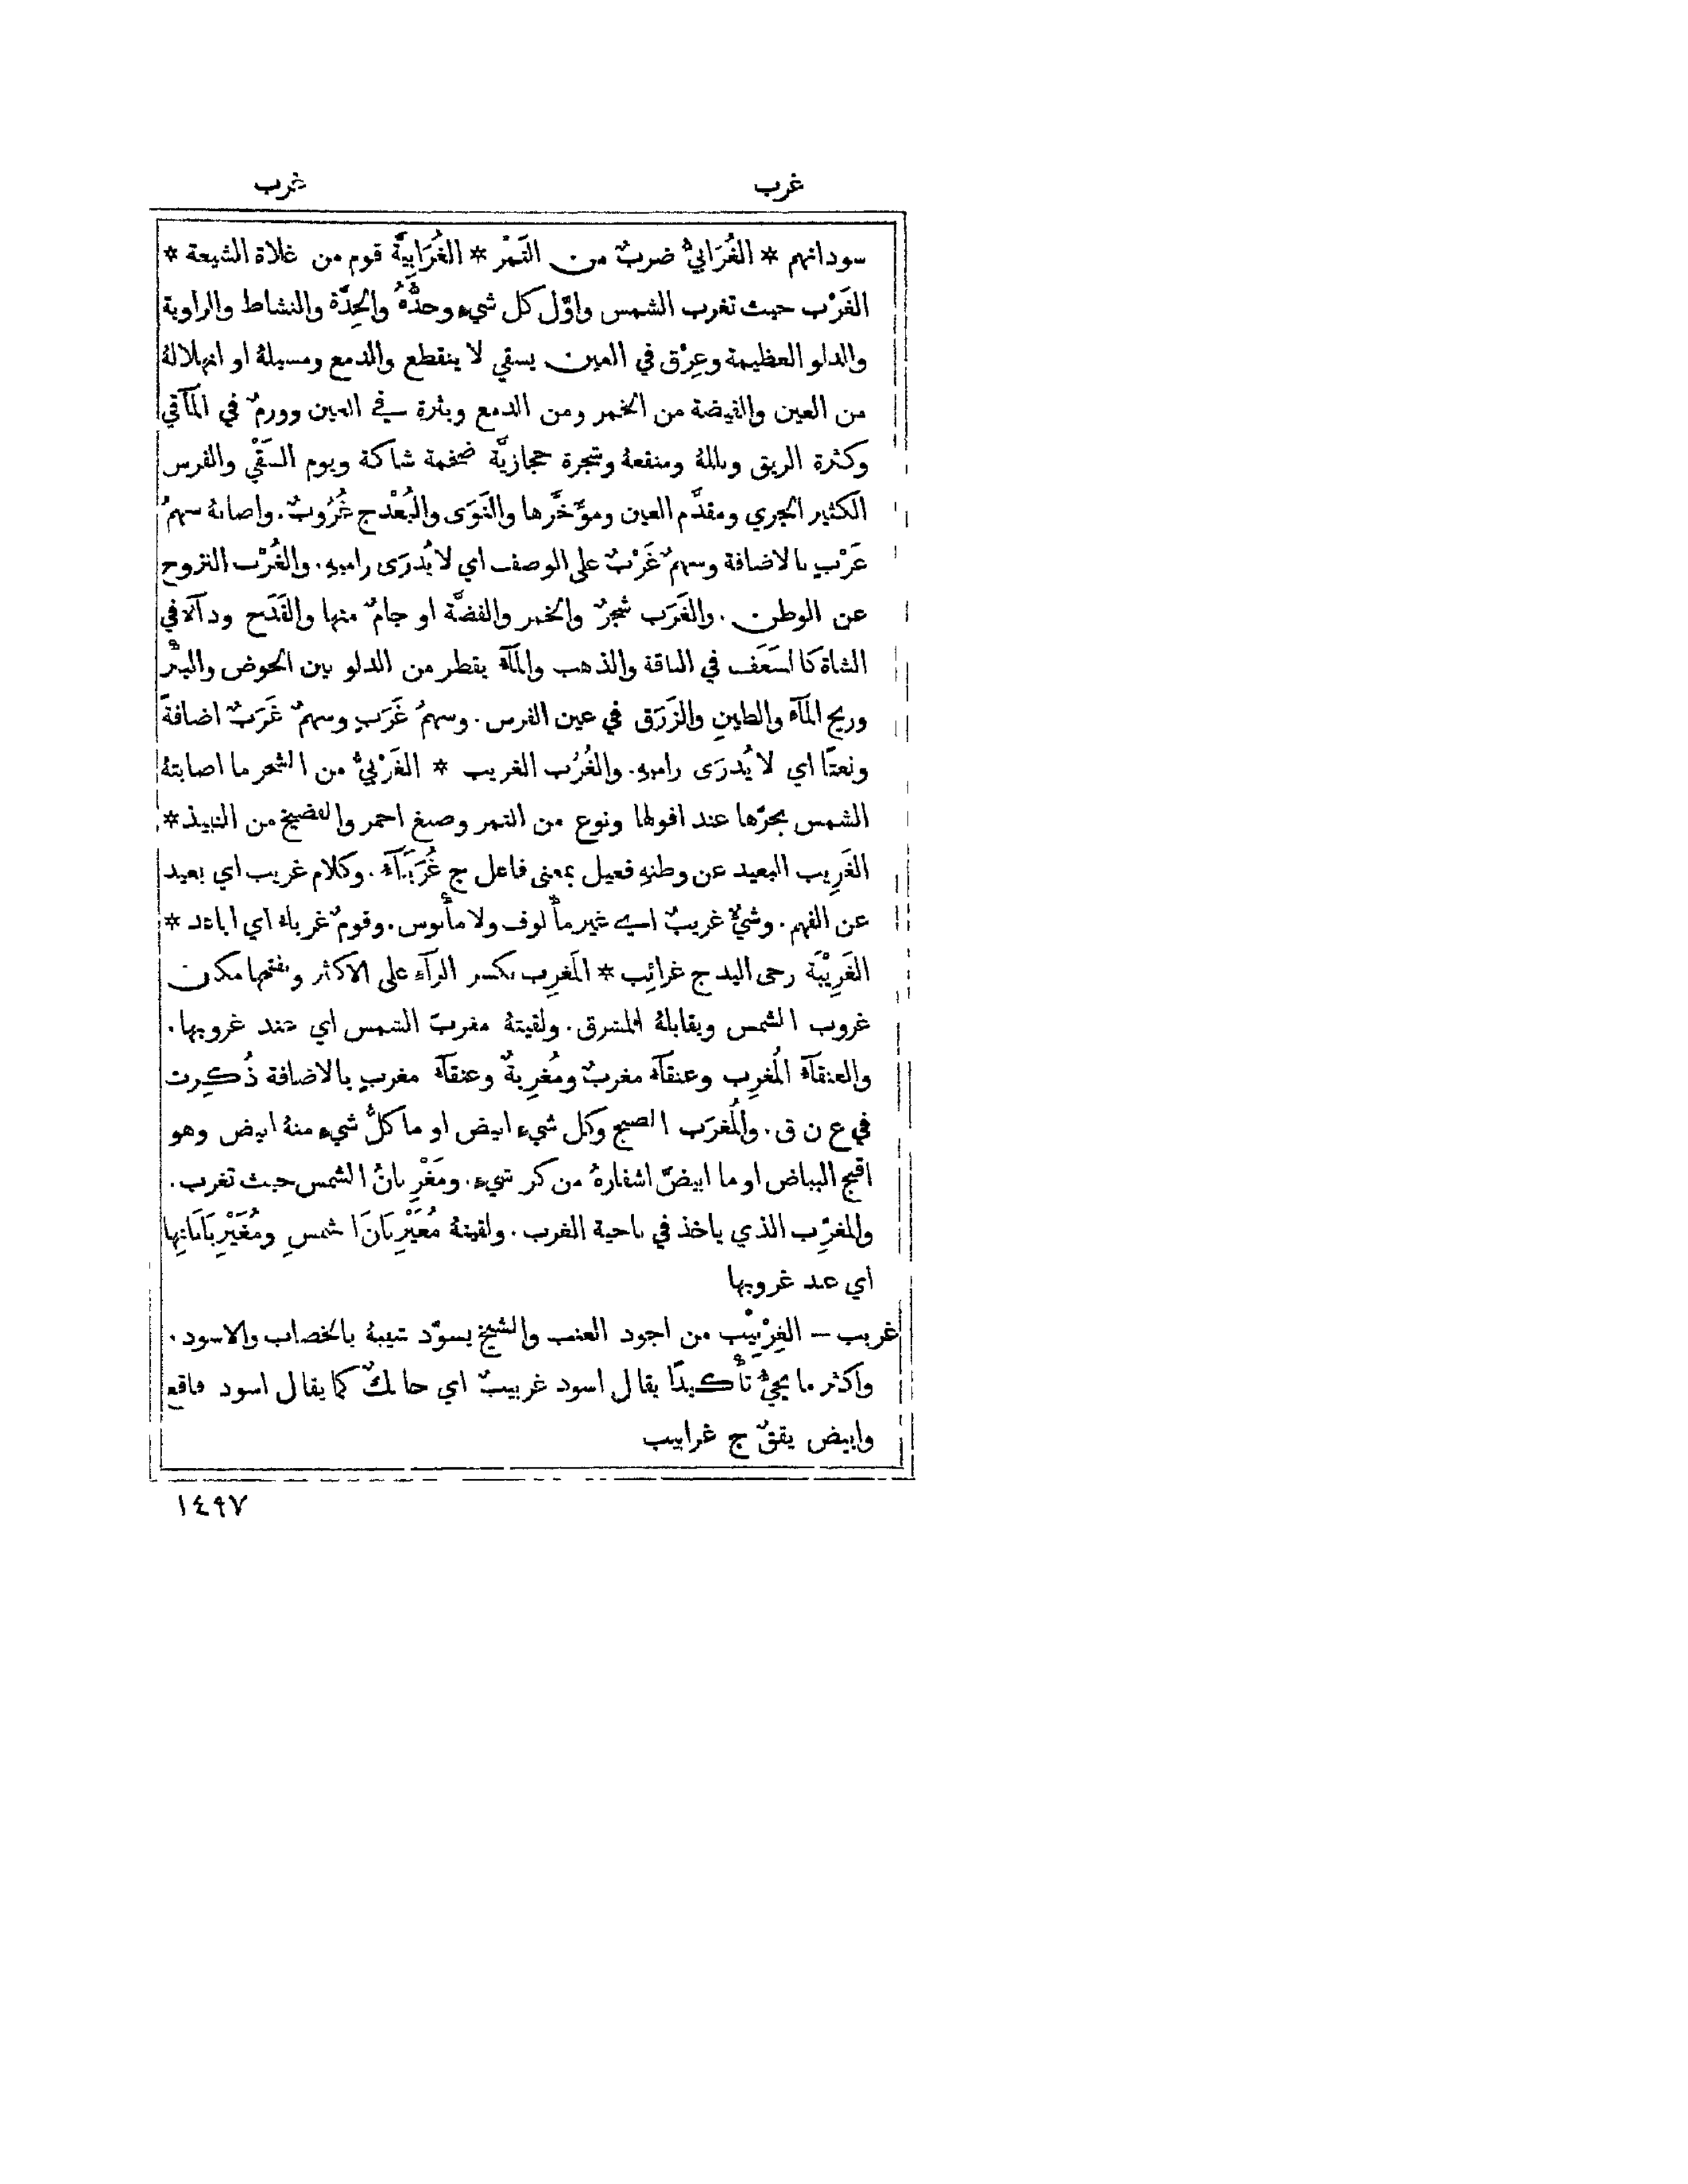 غرب غرب
سودانهم * الغُرَابيُّ ضربٌ من التَمْر * الغُرَابِيَّة قوم من غلاة الشيعة *
الغَرْب حيث تغرب الشمس واوّل كل شيءٍ وحدُّهُ والحِدَّة والنشاط والراوية
والدلو العظيمة وعِرْق في العين يسقي لا ينقطع والدمع ومسيلهُ او انهلالهُ
من العين والفيضة من الخمر ومن الدمع وبثرة في العين وورمٌ في المآقي
وكثرة الريق وبللهُ ومنقعهُ وشجرة حجازيَّة ضخمة شاكة ويوم السَقْي والفرس
الكثير الجري ومقدَّم العين ومؤَخَّرها والنَوَى والبُعْد ج غُرُوبٌ. واصابهُ سهمُ
غَرْبٍ بالاضافة وسهمٌ غَرْبٌ على الوصف اي لا يُدرَى راميهِ. والغُرْب النزوح
عن الوطن. والغَرَب شجرٌ والخمر والفضَّة او جامٌ منها والقَدَح ودآءٌ في
الشاة كالسَعَف في الناقة والذهب والمآءُ يقطر من الدلو بين الحوض والبئْر
وريح المآءِ والطين والزَرَق في عين الفرس. وسهمُ غَرَبٍ وسهمٌ غَرَبٌ اضافةً
ونعتًا اي لا يُدرَى راميهِ. والغُرُب الغريب * الغَرْبيُّ من الشجر ما اصابتهُ
الشمس بحرّها عند افولها ونوع من التمر وصبغ احمر والفضيخ من النبيذ *
الغَرِيب البعيد عن وطنهِ فعيل بمعنى فاعل ج غُرَبَآءُ. وكلام غريب اي بعيد
عن الفهم. وشيءٌ غريبٌ اي غير مأْلوف ولا مأْنوس. وقومٌ غرباءُ اي اباعد *
الغَرِيْبَة رحى اليد ج غرائب * المَغرِب بكسر الرآءِ على الاكثر وبفتحها مكان
غروب الشمس ويقابلهُ المشرق. ولقيتهُ مغربَ الشمس اي عند غروبها.
والعنقآءُ المُغرِب وعنقآءُ مغربٌ ومُغرِبةٌ وعنقآءُ مغربٍ بالاضافة ذُكِرت
في ع ن ق. والمُغرَب الصبح وكل شيءٍ ابيض او ما كلُّ شيءٍ منهُ ابيض وهو
اقبح البياض او ما ابيضّ اشفارهُ من كل شيءٍ. ومَغْرِبانُ الشمس حيث تغرب.
والمغرِّب الذي ياخذ في ناحية الغرب. ولقيتهُ مُغَيْرِبَانَ الشمسِ ومُغَيْرِبَانَاتِها
اي عند غروبها
غربب – الغِرْبِيْب من اجود العنب والشيخ يسوّد شيبهُ بالخضاب والاسود.
واكثر ما يجيءُ تأْكيدًا يقال اسود غربيبٌ اي حالكٌ كما يقال اسود فاقع
وابيض يققٌ ج غرابيب
١٤٩٧